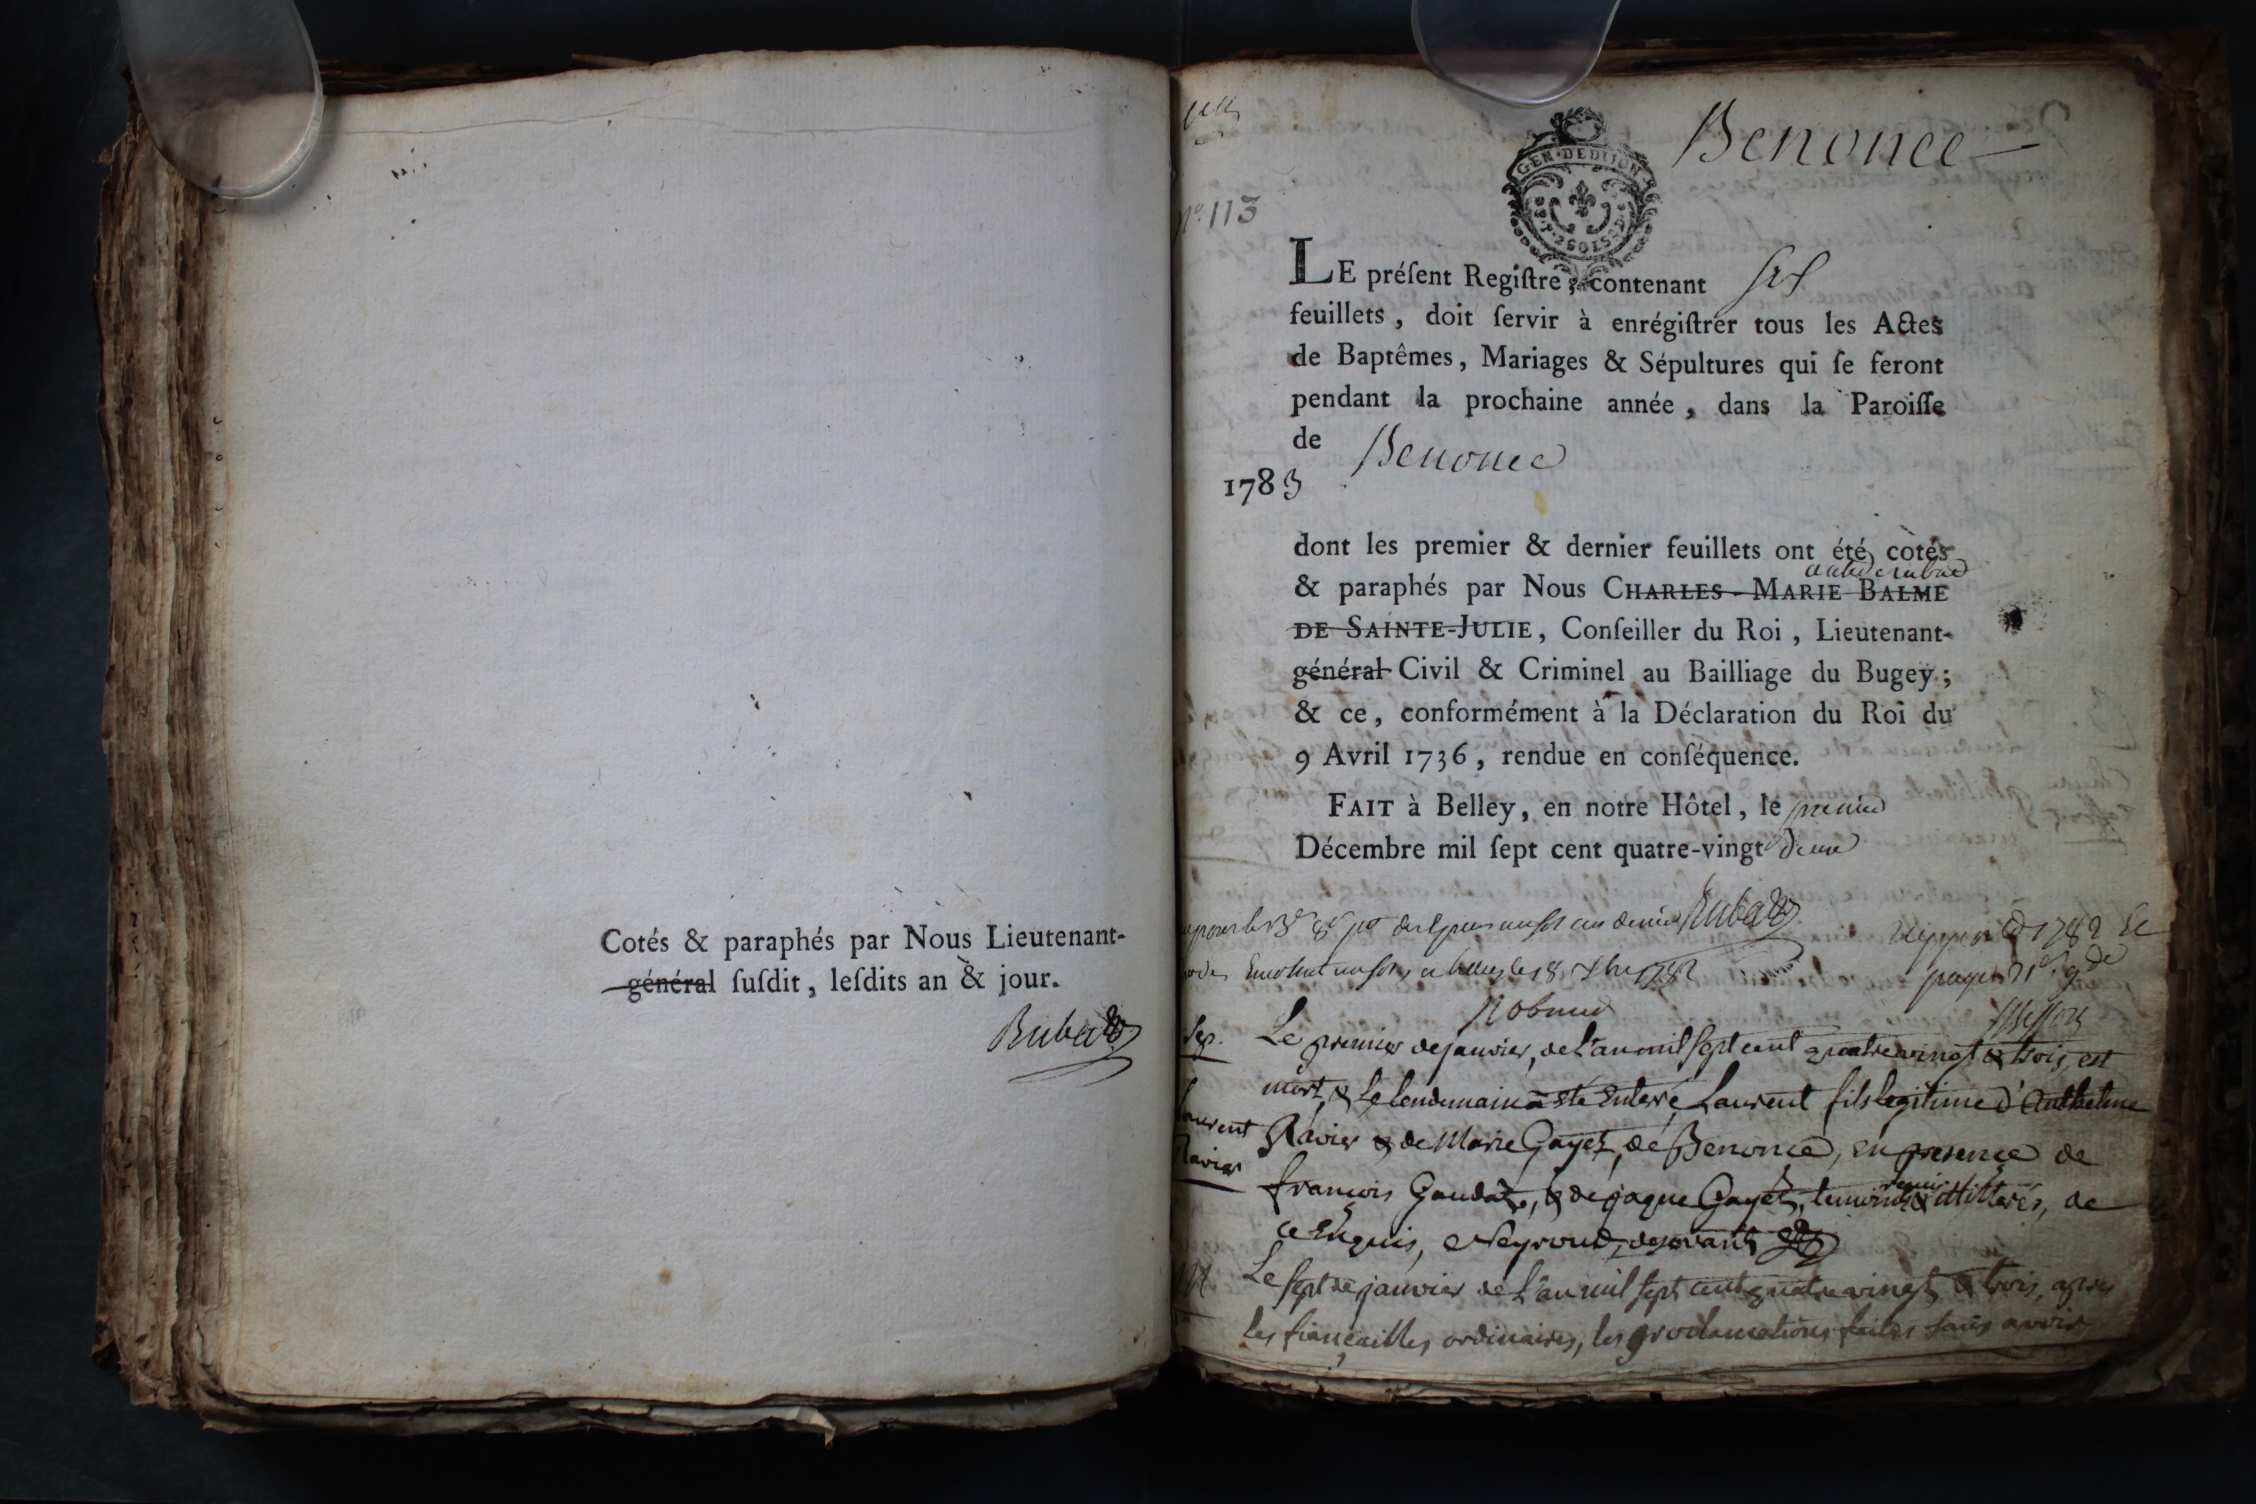 Cotés & paraphés par Nous Lieutenant-
général ſuſdit, leſdits an & jour.
Rubat
Benonce
GEN·DEDIJON
No. 113
LE préſent Regiſtre, contenant ſix
feuillets, doit ſervir à enrégiſtrer tous les Actes
de Baptêmes, Mariages & Sépultures qui ſe feront
pendant la prochaine année, dans la Paroiſſe
de Benonce
1783
dont les premier & dernier feuillets ont été cotés
& paraphés par Nous CHARLES-MARIE BALME
DE SAINTE-JULIE, Conſeiller du Roi, Lieutenant-
général Civil & Criminel au Bailliage du Bugey;
& ce, conformément à la Déclaration du Roi du
9 Avril 1736, rendue en conſéquence.
FAIT à Belley, en notre Hôtel, le premier
Décembre mil ſept cent quatre-vingt deux
Rubat
1782
Sep. Le premier de janvier, de l'an mil sept cent quatre vingt & trois, est
mort, & le lendemain a été enterré Laurent fils legitime d'Anthelme
Laurent Ravier & de Marie Gayet, de Benonce, en presence de
Ravier francois Gaudet, & de jaque Gayet, temoins illitterés, de
ce enquis,
Le sept de janvier de l'an mil sept cent quatre vingt & trois, apres
les fiançailles ordinaires, les proclamations faites sans avoir